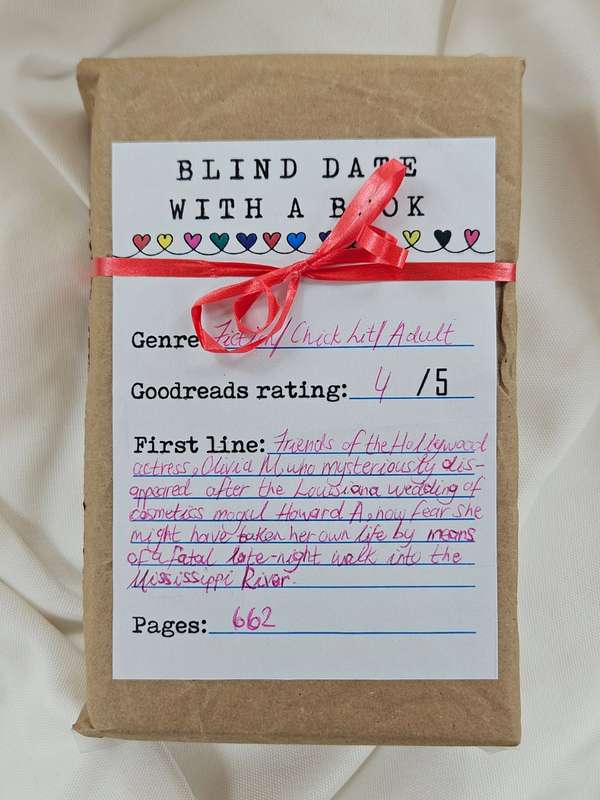 BLIND DATE
WITH A BOOK
Genre: Fiction/ Chick Lit/ Adult
Goodreads rating: 4 /5
First line: Friends of the Hollywood
actress, Olivia M, who mysteriously dis-
appeared after the Louisiana wedding of
cosmetics mogul Howard A, now fear she
might have taken her own life by means
of a fatal late-night walk into the
Mississippi River.
Pages: 662